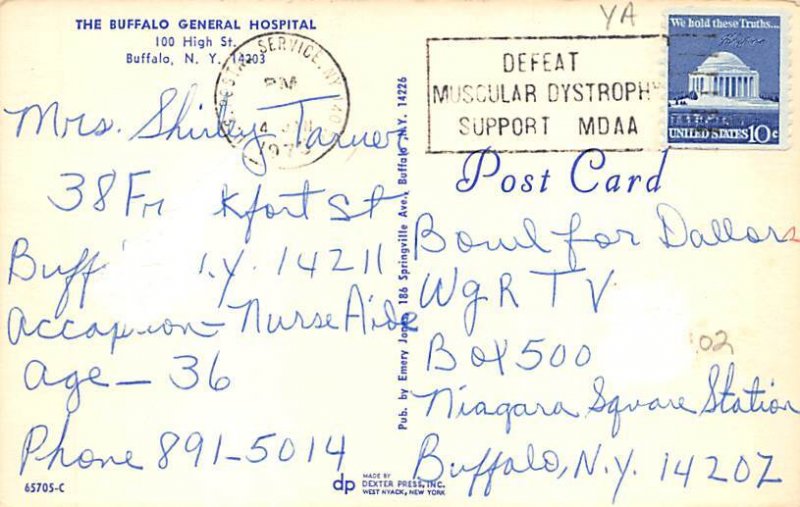 THE BUFFALO GENERAL HOSPITAL
100 High St.
Buffalo, N. Y. 14203
Mrs. Shirley Tarver
38 Fr kfort St
Buff .Y. 14211
accapion - Nurse Aide
age - 36
Phone 891-5014
65705-C
Pub. by Emery Jones, 186 Springville Ave., Buffalo, N.Y. 14226
dp
MADE BY
DEXTER PRESS, INC.
WEST NYACK, NEW YORK
POSTAL SERVICE, NY 140
PM
4
197
DEFEAT
MUSCULAR DYSTROPHY
SUPPORT MDAA
YA
We hold these Truths...
UNITED STATES 10c
Post Card
Bowl for Dallors
WgR TV
Box 500
02
Niagara Square Station
Buffalo, N.Y. 14202